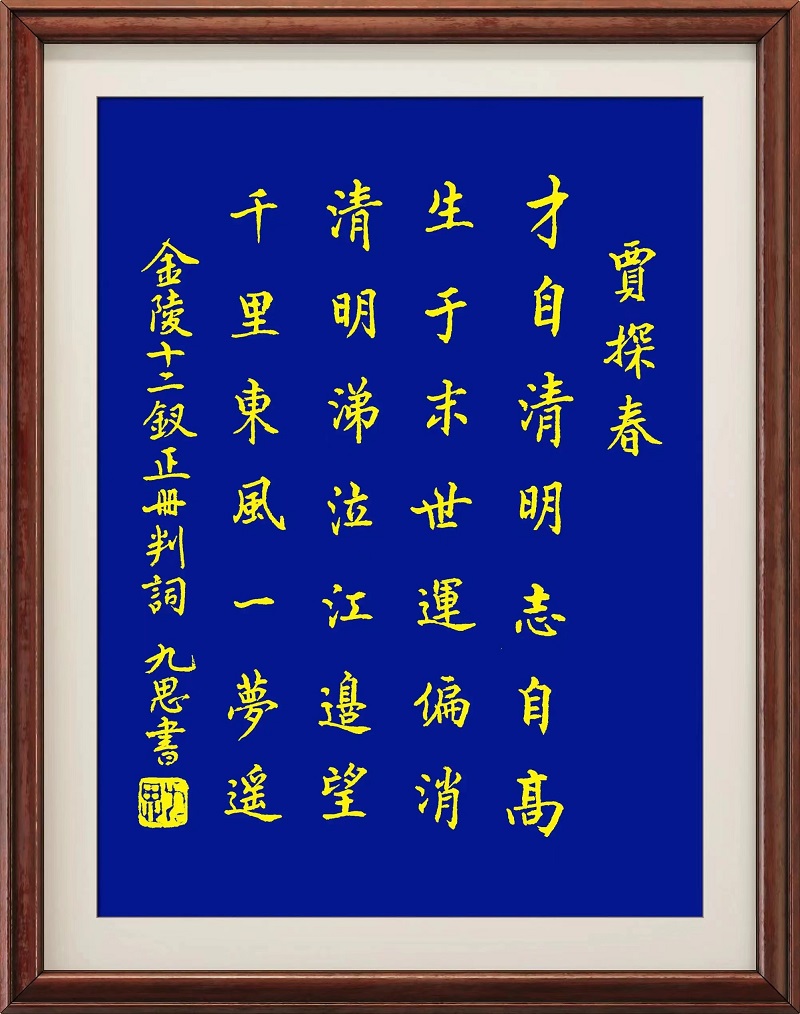 賈探春
才自清明志自高
生于末世運偏消
清明涕泣江邊望
千里東風一夢遥
金陵十二釵正冊判詞 九思書
九思